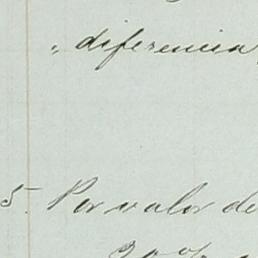 " diferencia
5 Por valor de
20 %